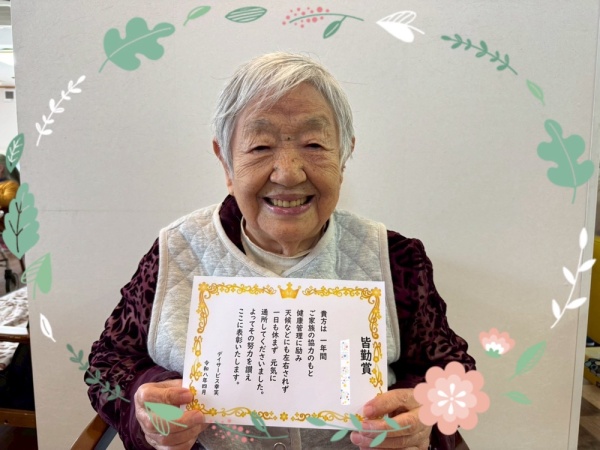 皆勤賞
貴方は 一年間
ご家族の協力のもと
健康管理に励み
天候などにも左右されず
一日も休まず 元気に
通所してくださいました。
よってその努力を讃え
ここに表彰いたします。
令和八年四月
デイサービス幸実